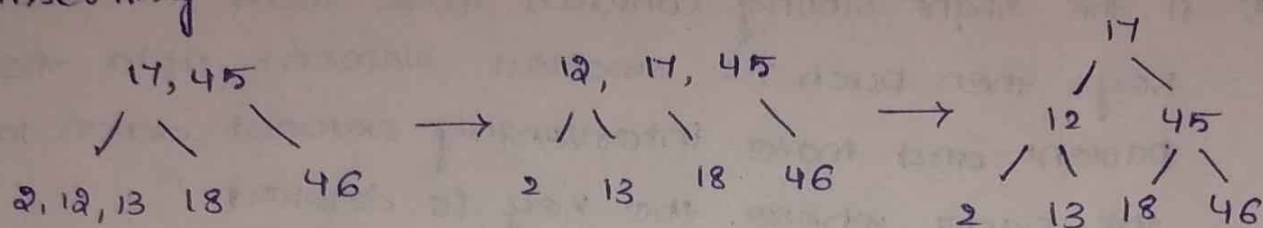 17, 45
2, 12, 13 18 46
→
12, 17, 45
2 13 18 46
→
17
12 45
2 13 18 46